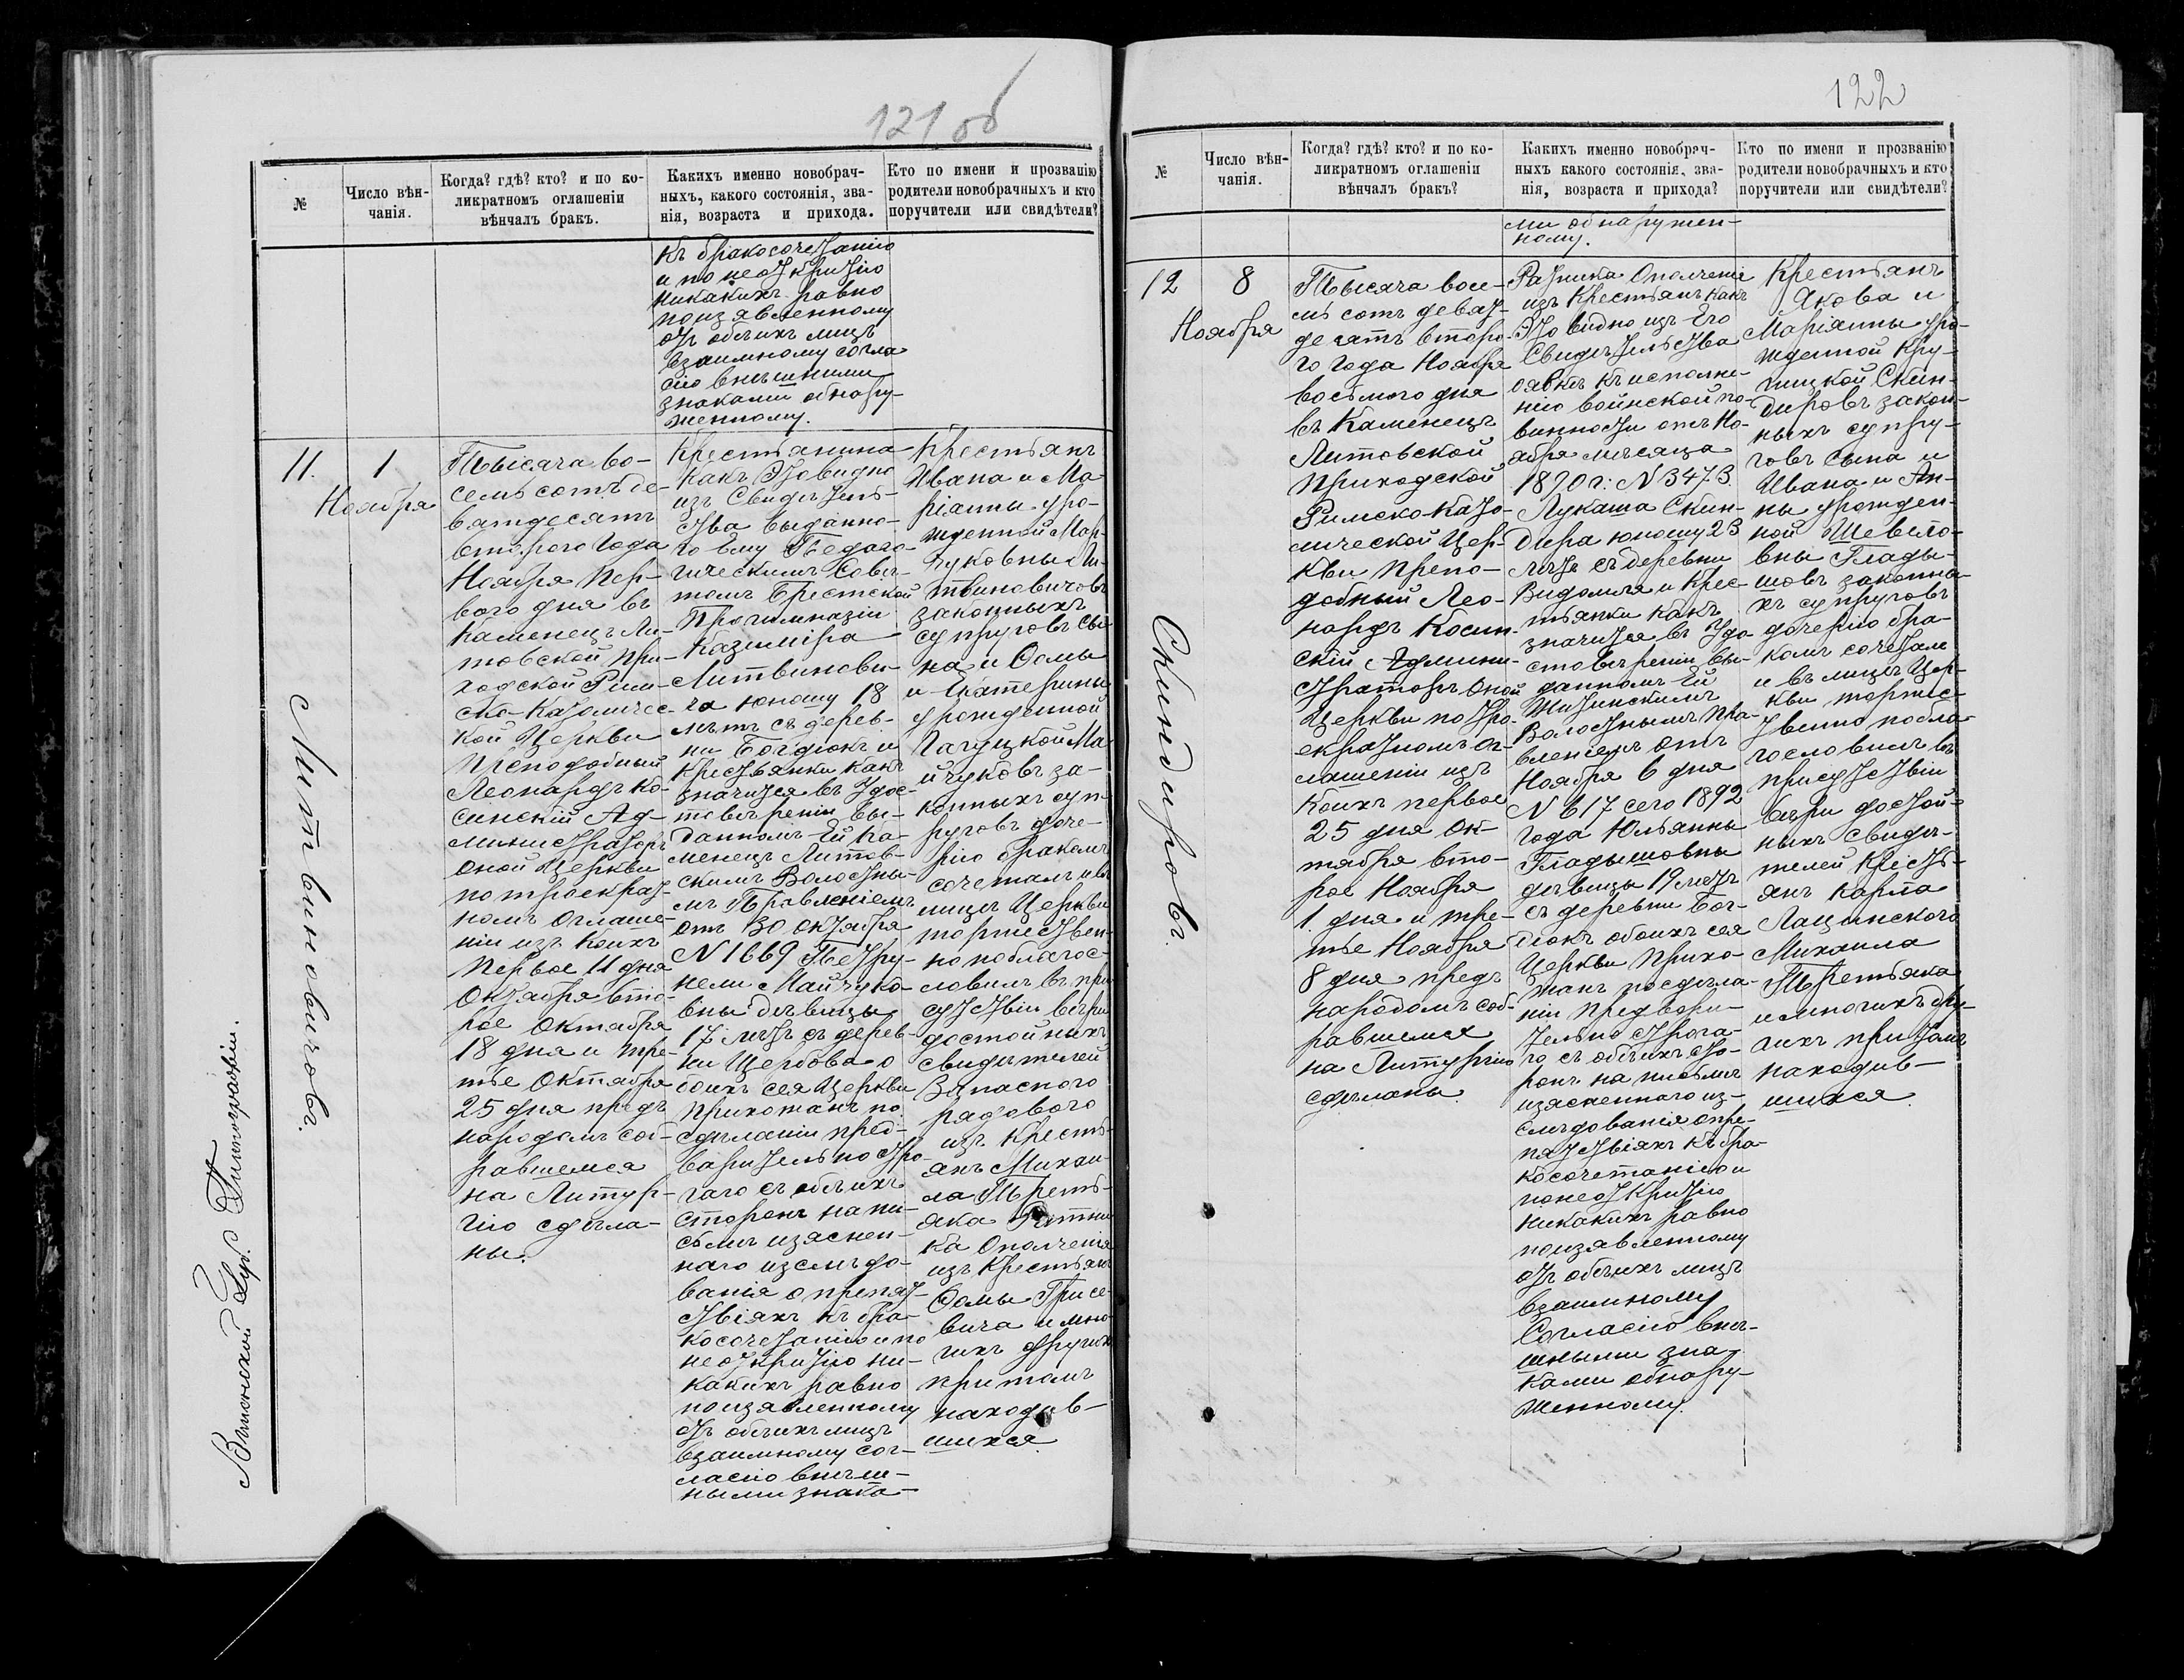 121 об
№
Число вѣн-
чанія.
Когда? гдѣ? кто? и по ко-
ликратномъ оглашеніи
вѣнчалъ бракъ.
Какихъ именно новобрач-
ныхъ, какого состоянія, зва-
нія, возраста и прихода.
Кто по имени и прозванію
родители новобрачныхъ и кто
поручители или свидѣтели?
къ бракосочетанію
и по неоткрытію
никакихъ равно
поизявленному
отъ обѣихъ лицъ
взаимному согла
сію внѣшними
знаками обнару-
женному.
11.
1
Ноября
Литвиновичовъ.
Тысяча во-
семь сотъ де-
вятдесятъ
второго года
Ноября пер-
вого дня въ
Каменецъ Ли-
товской при-
ходской Рим-
ско-Католичес-
кой Церкви
Преподобный
Леонардъ Ко-
синскій Ад-
министраторъ
оной Церкви
по троекрат-
номъ оглаше-
ніи изъ коихъ
первое 11 дня
Октября вто-
рое Октября
18 дня и тре-
тье Октября
25 дня предъ
народомъ соб-
равшемся
на Литур-
гію сдѣла-
ны.
Крестьянина
какъ Это видно
изъ Свидѣтель-
ства выданно-
го Ему Педаго-
гическимъ Совѣ-
томъ Брестской
Прогимназіи
Казиміра
Литвинови-
ча юношу 18
лѣтъ съ дерев-
ни Богдюкъ и
Крестьянки какъ
значится въ Удос-
товѣреніи вы-
данномъ Ей Ка-
менецъ Литов-
скимъ Волостны-
мъ Правленіемъ
отъ 30 Октября
N 1669 Петру-
нели Майчуко-
вны дѣвицы
17 лѣтъ съ дерев-
ни Щербова о
боихъ сея Церкви
прихожанъ по
сдѣланіи пред-
варительно стро-
гаго съ обѣихъ
сторонъ на пи-
сьмѣ изяснен-
наго изслѣдо-
ванія о препят-
ствіяхъ къ бра-
косочетанію и по
неоткрытію ни-
какихъ равно
поизявленному
отъ обѣихъ лицъ
взаимному сог-
ласію внѣш-
ными знака-
Крестьянъ
Ивана и Ма
ріанны уро-
жденной Мар-
чуковны Ли-
твиновичовъ
законныхъ
супруговъ сы
на и Ѳомы
и Екатерины
урожденной
Гагуцкой Ма
йчуковъ за-
конныхъ суп-
руговъ доче-
рію бракомъ
сочеталъ и въ
лицѣ Церкви
торжествен-
но поблагос-
ловилъ въ при
сутствіи вѣри
достойныхъ
Свидѣтелей
Запаснаго
рядового
изъ Кресть-
янъ Михаи-
ла Треть-
яка Ратни
ка Ополченія
изъ Крестьянъ
Ѳомы Грисе-
вича и мно
гихъ другихъ
притомъ
находив-
шихся
Виленской Губ. Типографіи.
122
№
Число вѣн-
чанія.
Когда? гдѣ? кто? и по ко-
ликратномъ оглашеніи
вѣнчалъ бракъ?
Какихъ именно новобрач-
ныхъ какого состоянія, зва-
нія, возраста и прихода?
Кто по имени и прозванію
родители новобрачныхъ и кто
поручители или свидѣтели?
ми обнаружен-
ному.
12
8
Ноября
Скиндировъ.
Тысяча восе-
мь сотъ девят-
десятъ второ-
го года Ноября
восьмого дня
въ Каменецъ
Литовской
приходской
Римско Като-
лической Цер-
кви Препо-
добный Лео-
нардъ Косин-
скій Админи-
страторъ оной
Церкви по тро-
екратномъ ог-
лашеніи изъ
коихъ первое
25 дня Ок-
тября вто-
рое Ноября
1 дня и тре-
тье Ноября
8 дня предъ
народомъ соб-
равшемся
на Литургію
сдѣланы.
Ратника Ополченіе
изъ Крестьянъ какъ
Это видно изъ Его
Свидѣтельства
о явкѣ къ исполне-
нію воинской по-
винности отъ Но-
ября мѣсяца
1890 г. N 3473
Лукаша Скин-
дира юношу 23
лѣтъ съ деревни
Видомля и Крес-
тьянки какъ
значится въ Удо
стовѣреніи вы-
данномъ Ей
Волостнымъ Пра-
вленіемъ отъ
Ноября 6 дня
N 617 сего 1892
года Юльянны
Гладышовны
дѣвицы 19 лѣтъ
съ деревни Бог-
дюкъ обоихъ сея
Церкви прихо-
жанъ по сдѣла-
ніи предвари-
тельно строга-
го съ обѣихъ сто-
ронъ на письмѣ
изясненнаго из-
слѣдованія о пре-
пятствіяхъ къ бра-
косочетанію и
по неоткрытію
никакихъ равно
поизявленному
отъ обѣихъ лицъ
взаимному
Согласію внѣ-
шными зна-
ками обнару-
женному.
Крестьянъ
Якова и
Маріянны уро-
жденной Кру-
пицкой Скин-
дировъ закон-
ныхъ супру-
говъ Сына и
Ивана и Ан-
ны урожден-
ной Шевело-
вны Глады-
шовъ законны-
хъ супруговъ
дочерію бра-
комъ сочеталъ
и въ лицѣ Цер-
кви торжес-
твенно побла-
гословилъ въ
присутствіи
вѣри достой-
ныхъ Свидѣ-
телей Кресть-
янъ Карла
Лащинского
Михаила
Третьяка
и многихъ дру-
гихъ притомъ
находив-
шихся.